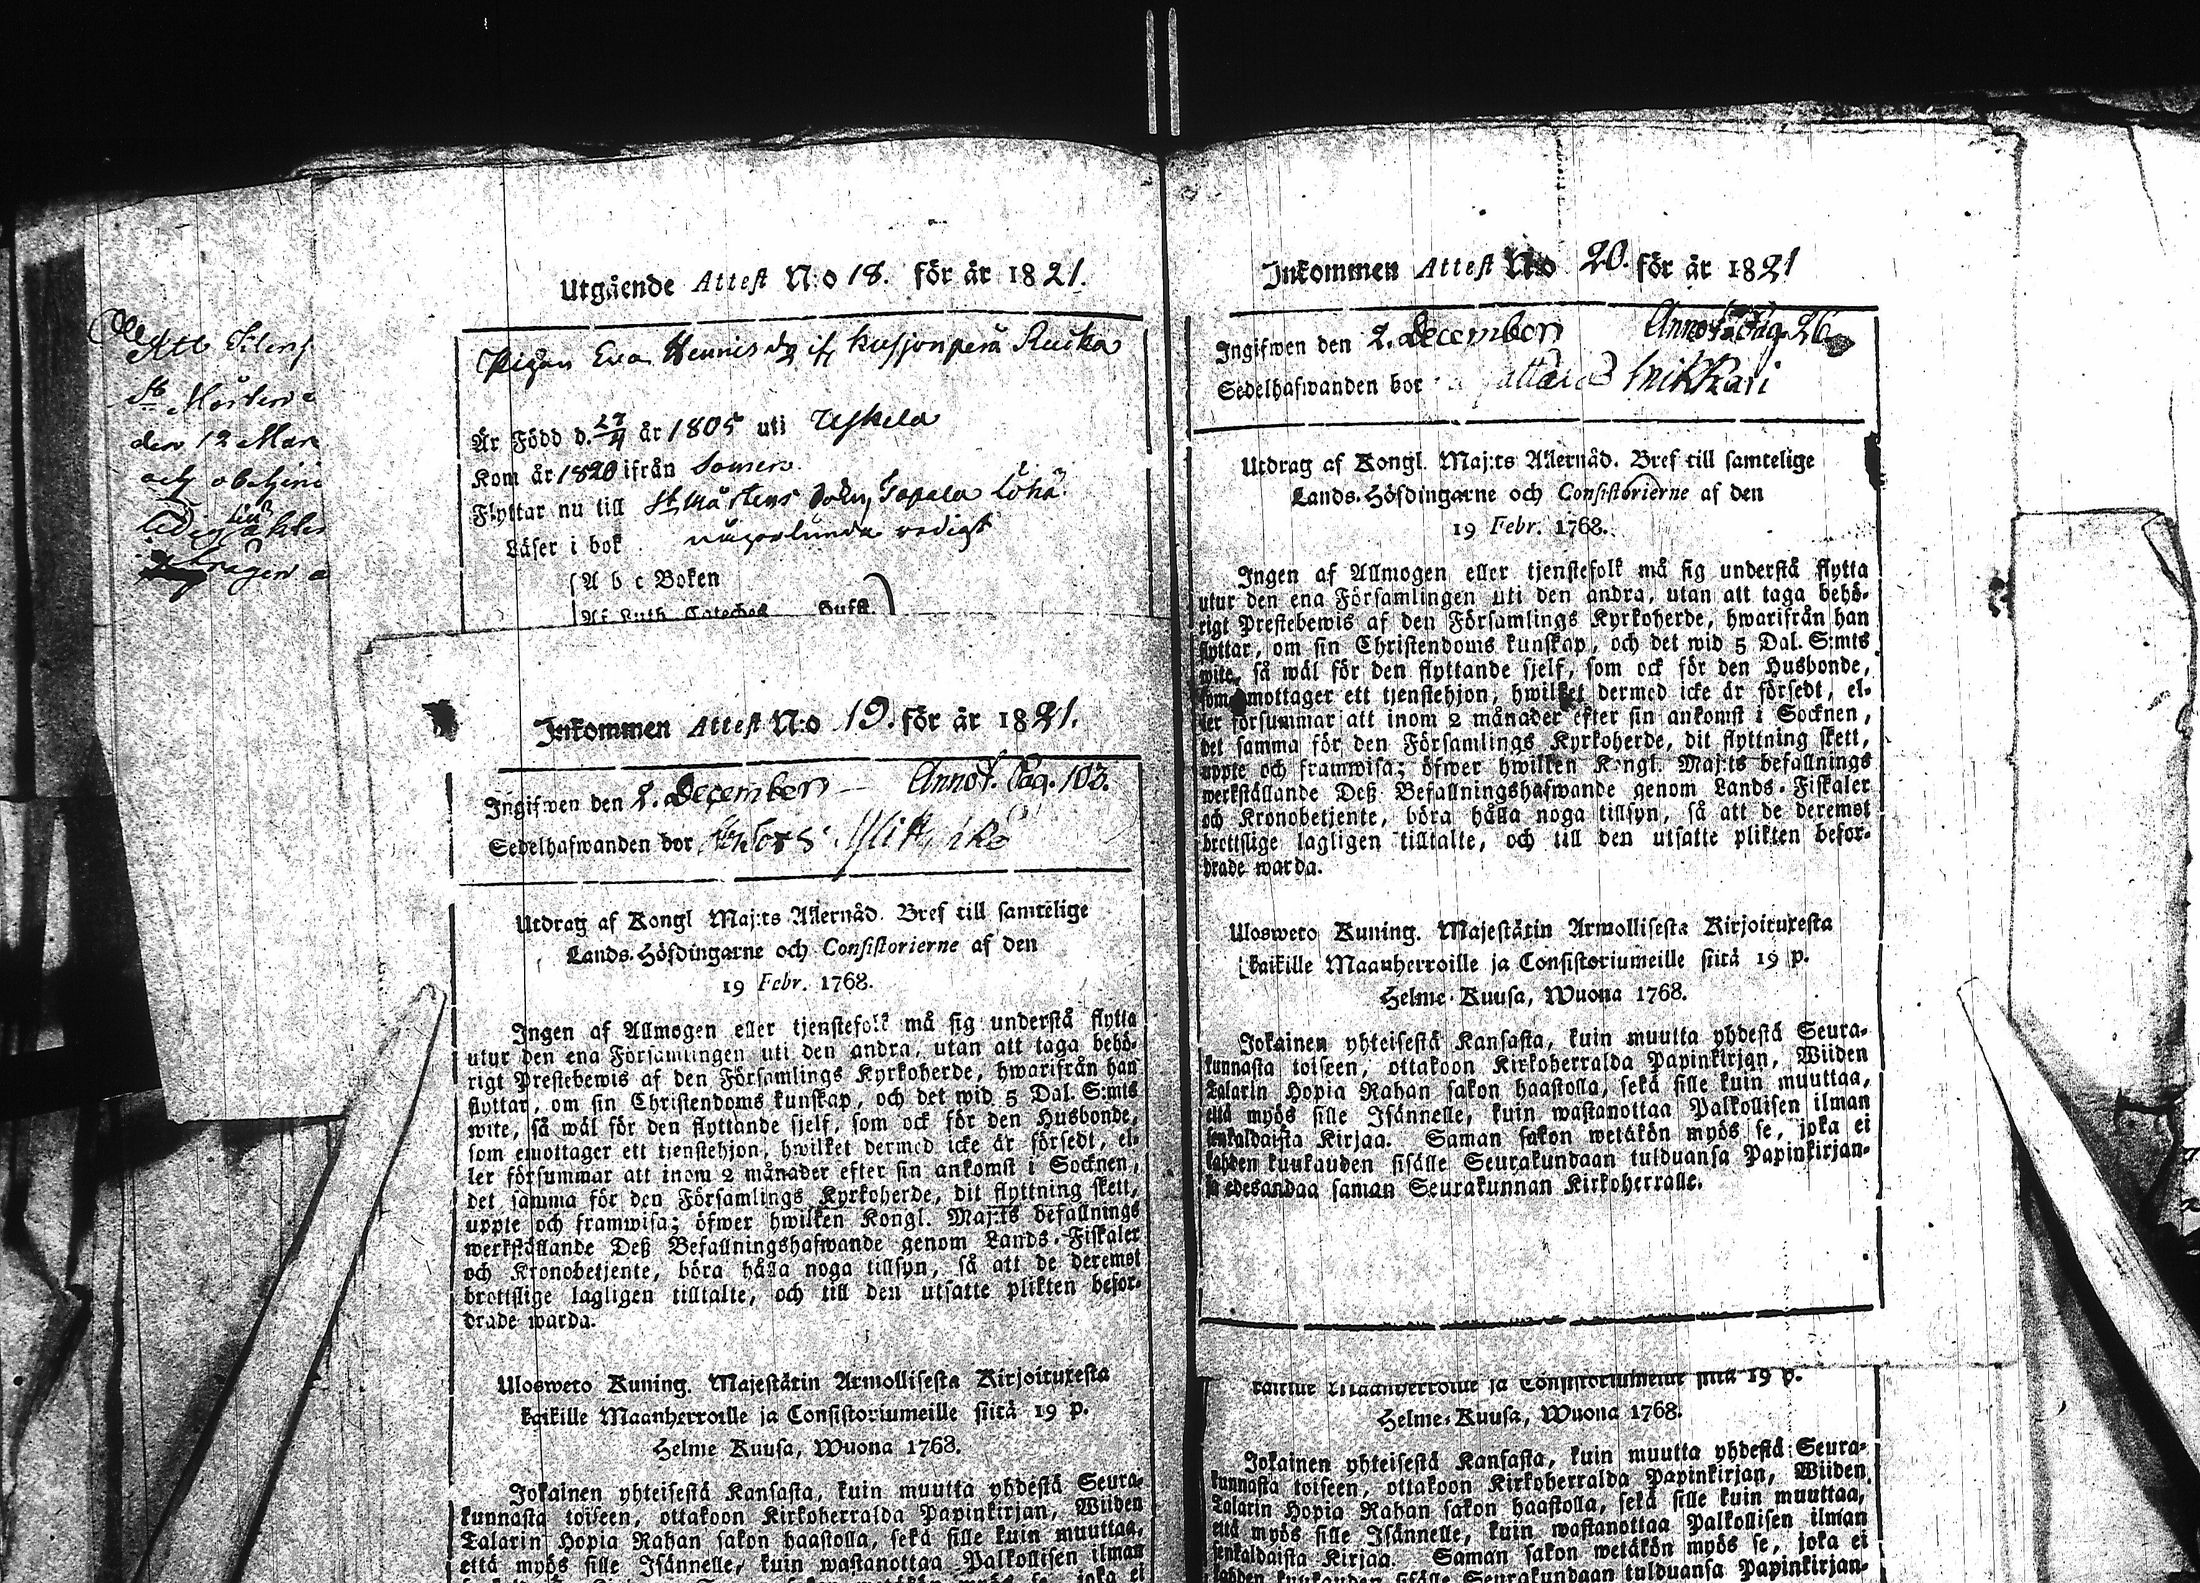 Att
St Mårtens
den 12 Mar
och
Utgående Attest N:o 18. för år 1821.
Pigan Eva Hennisdr ifr. Kursjonperä Rucka
Är Född d. 27/4 år 1805 uti Uskela
Kom år 1820 ifrån Somero
Flyttar nu till St Mårtens
Läser i bok någorlunda redigt
A b c Boken
Af Luth. Cateches
Inkommen Attest N:o 19. för år 1821.
Ingifwen den 2. December Annot. Pag. 103.
Sedelhafwanden bor
Utdrag af Kongl Maj:ts Allernåd. Bref till samtelige
Lands-Höfdingarne och Consistorierne af den
19 Febr. 1768.
Ingen af Allmogen eller tjenstefolk må sig understå flytta
utur den ena Församlingen uti den andra, utan att taga behö-
rigt Prestebewis af den Församlings Kyrkoherde, hwarifrån han
flyttar, om sin Christendoms kunskap, och det wid 5 Dal. S:mts
wite, så wäl för den flyttande sjelf, som ock för den Husbonde,
som emottager ett tjenstehjon, hwilket dermed icke är försedt, el-
ler försummar att inom 2 månader efter sin ankomst i Socknen,
det samma för den Församlings Kyrkoherde, dit flyttning skett,
uppte och framwisa; öfwer hwilken Kongl. Maj:ts befallnings
werkställande Deß Befallningshafwande genom Lands-Fiskaler
och Kronobetjente, böra hålla noga tillsyn, så att de deremot
brottslige lagligen tilltalte, och till den utsatte plikten befor-
drade warda.
Ulosweto Kuning. Majestätin Armollisesta Kirjoituxesta
kaikille Maanherroille ja Consistoriumeille siitä 19 p.
Helme Kuusa, Wuona 1768.
Jokainen yhteisestä Kansasta, kuin muutta yhdestä Seura-
kunnasta toiseen, ottakoon Kirkoherralda Papinkirjan, Wiiden
Talarin Hopia Rahan sakon haastolla, sekä sille kuin muuttaa,
että myös sille Isännelle, kuin wastanottaa Palkollisen ilman
Inkommen Attest N:o 20. för år 1821
Ingifwen den 2. December Annot. Pag. 26
Sedelhafwanden bor
Utdrag af Kongl. Maj:ts Allernåd. Bref till samtelige
Lands-Höfdingarne och Consistorierne af den
19 Febr. 1768.
Ingen af Allmogen eller tjenstefolk må sig understå flytta
utur den ena Församlingen uti den andra, utan att taga behö-
rigt Prestebewis af den Församlings Kyrkoherde, hwarifrån han
flyttar, om sin Christendoms kunskap, och det wid 5 Dal. S:mts
wite, så wäl för den flyttande sjelf, som ock för den Husbonde,
som emottager ett tjenstehjon, hwilket dermed icke är försedt, el-
ler försummar att inom 2 månader efter sin ankomst i Socknen,
det samma för den Församlings Kyrkoherde, dit flyttning skett,
uppte och framwisa; öfwer hwilken Kongl. Maj:ts befallnings
werkställande Deß Befallningshafwande genom Lands-Fiskaler
och Kronobetjente, böra hålla noga tillsyn, så att de deremot
brottslige lagligen tilltalte, och till den utsatte plikten befor-
drade warda.
Ulosweto Kuning. Majestätin Armollisesta Kirjoituxesta
kaikille Maanherroille ja Consistoriumeille siitä 19 p.
Helme-Kuusa, Wuona 1768.
Jokainen yhteisestä Kansasta, kuin muutta yhdestä Seura-
kunnasta toiseen, ottakoon Kirkoherralda Papinkirjan, Wiiden
Talarin Hopia Rahan sakon haastolla, sekä sille kuin muuttaa,
että myös sille Isännelle, kuin wastanottaa Palkollisen ilman
senkaldaista Kirjaa. Saman sakon wetäkön myös se, joka ei
kahden kuukauden sisälle Seurakundaan tulduansa Papinkirjan-
sa edesandaa saman Seurakunnan Kirkoherralle.
kaikille Maanherroille ja Consistoriumeille siitä 19 p.
Helme-Kuusa, Wuona 1768.
Jokainen yhteisestä Kansasta, kuin muutta yhdestä Seura-
kunnasta toiseen, ottakoon Kirkoherralda Papinkirjan, Wiiden
Talarin Hopia Rahan sakon haastolla, sekä sille kuin muuttaa,
että myös sille Isännelle, kuin wastanottaa Palkollisen ilman
senkaldaista Kirjaa. Saman sakon wetäkön myös se, joka ei
kahden kuukauden sisälle Seurakundaan tulduansa Papinkirjan-